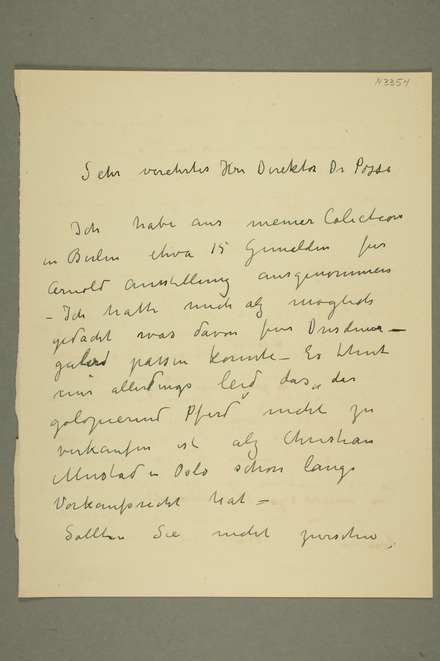 N3354
Sehr verehrter Herr Direktor Dr Posse
Ich habe aus meiner Colection
in Berlin etwa 15 Gemelden fur
Arnold Ausstellung ausgenommen
– Ich hatte mich alz moglich
gedacht was davon fur Dresdener–
galerd passen konnte – Es thut
mir allerdings leid das „das
galopierend Pferd" nicht zu
verkaufen ist alz Christian
Mustad in Oslo schon langs
Vorkaufsrecht hat –
Sollten Sie nicht